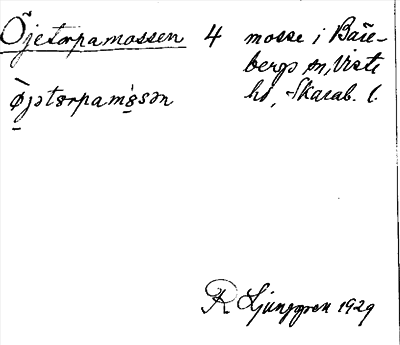 Öjetorpamossen 4 mosse i Barebergs sn, Viste
hd, Skarab. l.
øjətørpamòsən
R Ljunggren 1929